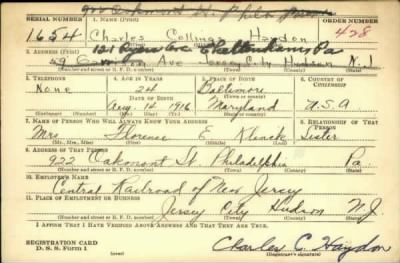 SERIAL NUMBER 1. NAME (Print) ORDER NUMBER
1654 Charles Collings Haydon 478
2. ADDRESS (Print) 121 Ave Cheltenham, Pa
59 Ave Jersey City Hudson N.J.
(Number and street or R. F. D. number) (Town) (County) (State)
3. TELEPHONE 4. AGE IN YEARS 5. PLACE OF BIRTH 6. COUNTRY OF CITIZENSHIP
None 24 Baltimore
DATE OF BIRTH
Aug. 14 1916 Maryland U.S.A
(Mo.) (Day) (Yr.) (State or country)
7. NAME OF PERSON WHO WILL ALWAYS KNOW YOUR ADDRESS 8. RELATIONSHIP OF THAT PERSON
Mrs Florence E. Klenck Sister
(Mr., Mrs., Miss) (First) (Middle) (Last)
9. ADDRESS OF THAT PERSON
922 Oakmont St. Philadelphia Pa.
(Number and street or R. F. D. number) (Town) (County) (State)
10. EMPLOYER'S NAME
Central Railroad of New Jersey
11. PLACE OF EMPLOYMENT OR BUSINESS
Jersey City Hudson N.J.
(Number and street or R. F. D. number) (Town) (County) (State)
I AFFIRM THAT I HAVE VERIFIED ABOVE ANSWERS AND THAT THEY ARE TRUE.
REGISTRATION CARD
D. S. S. Form 1 (over) Charles C. Haydon
(Registrant's signature)